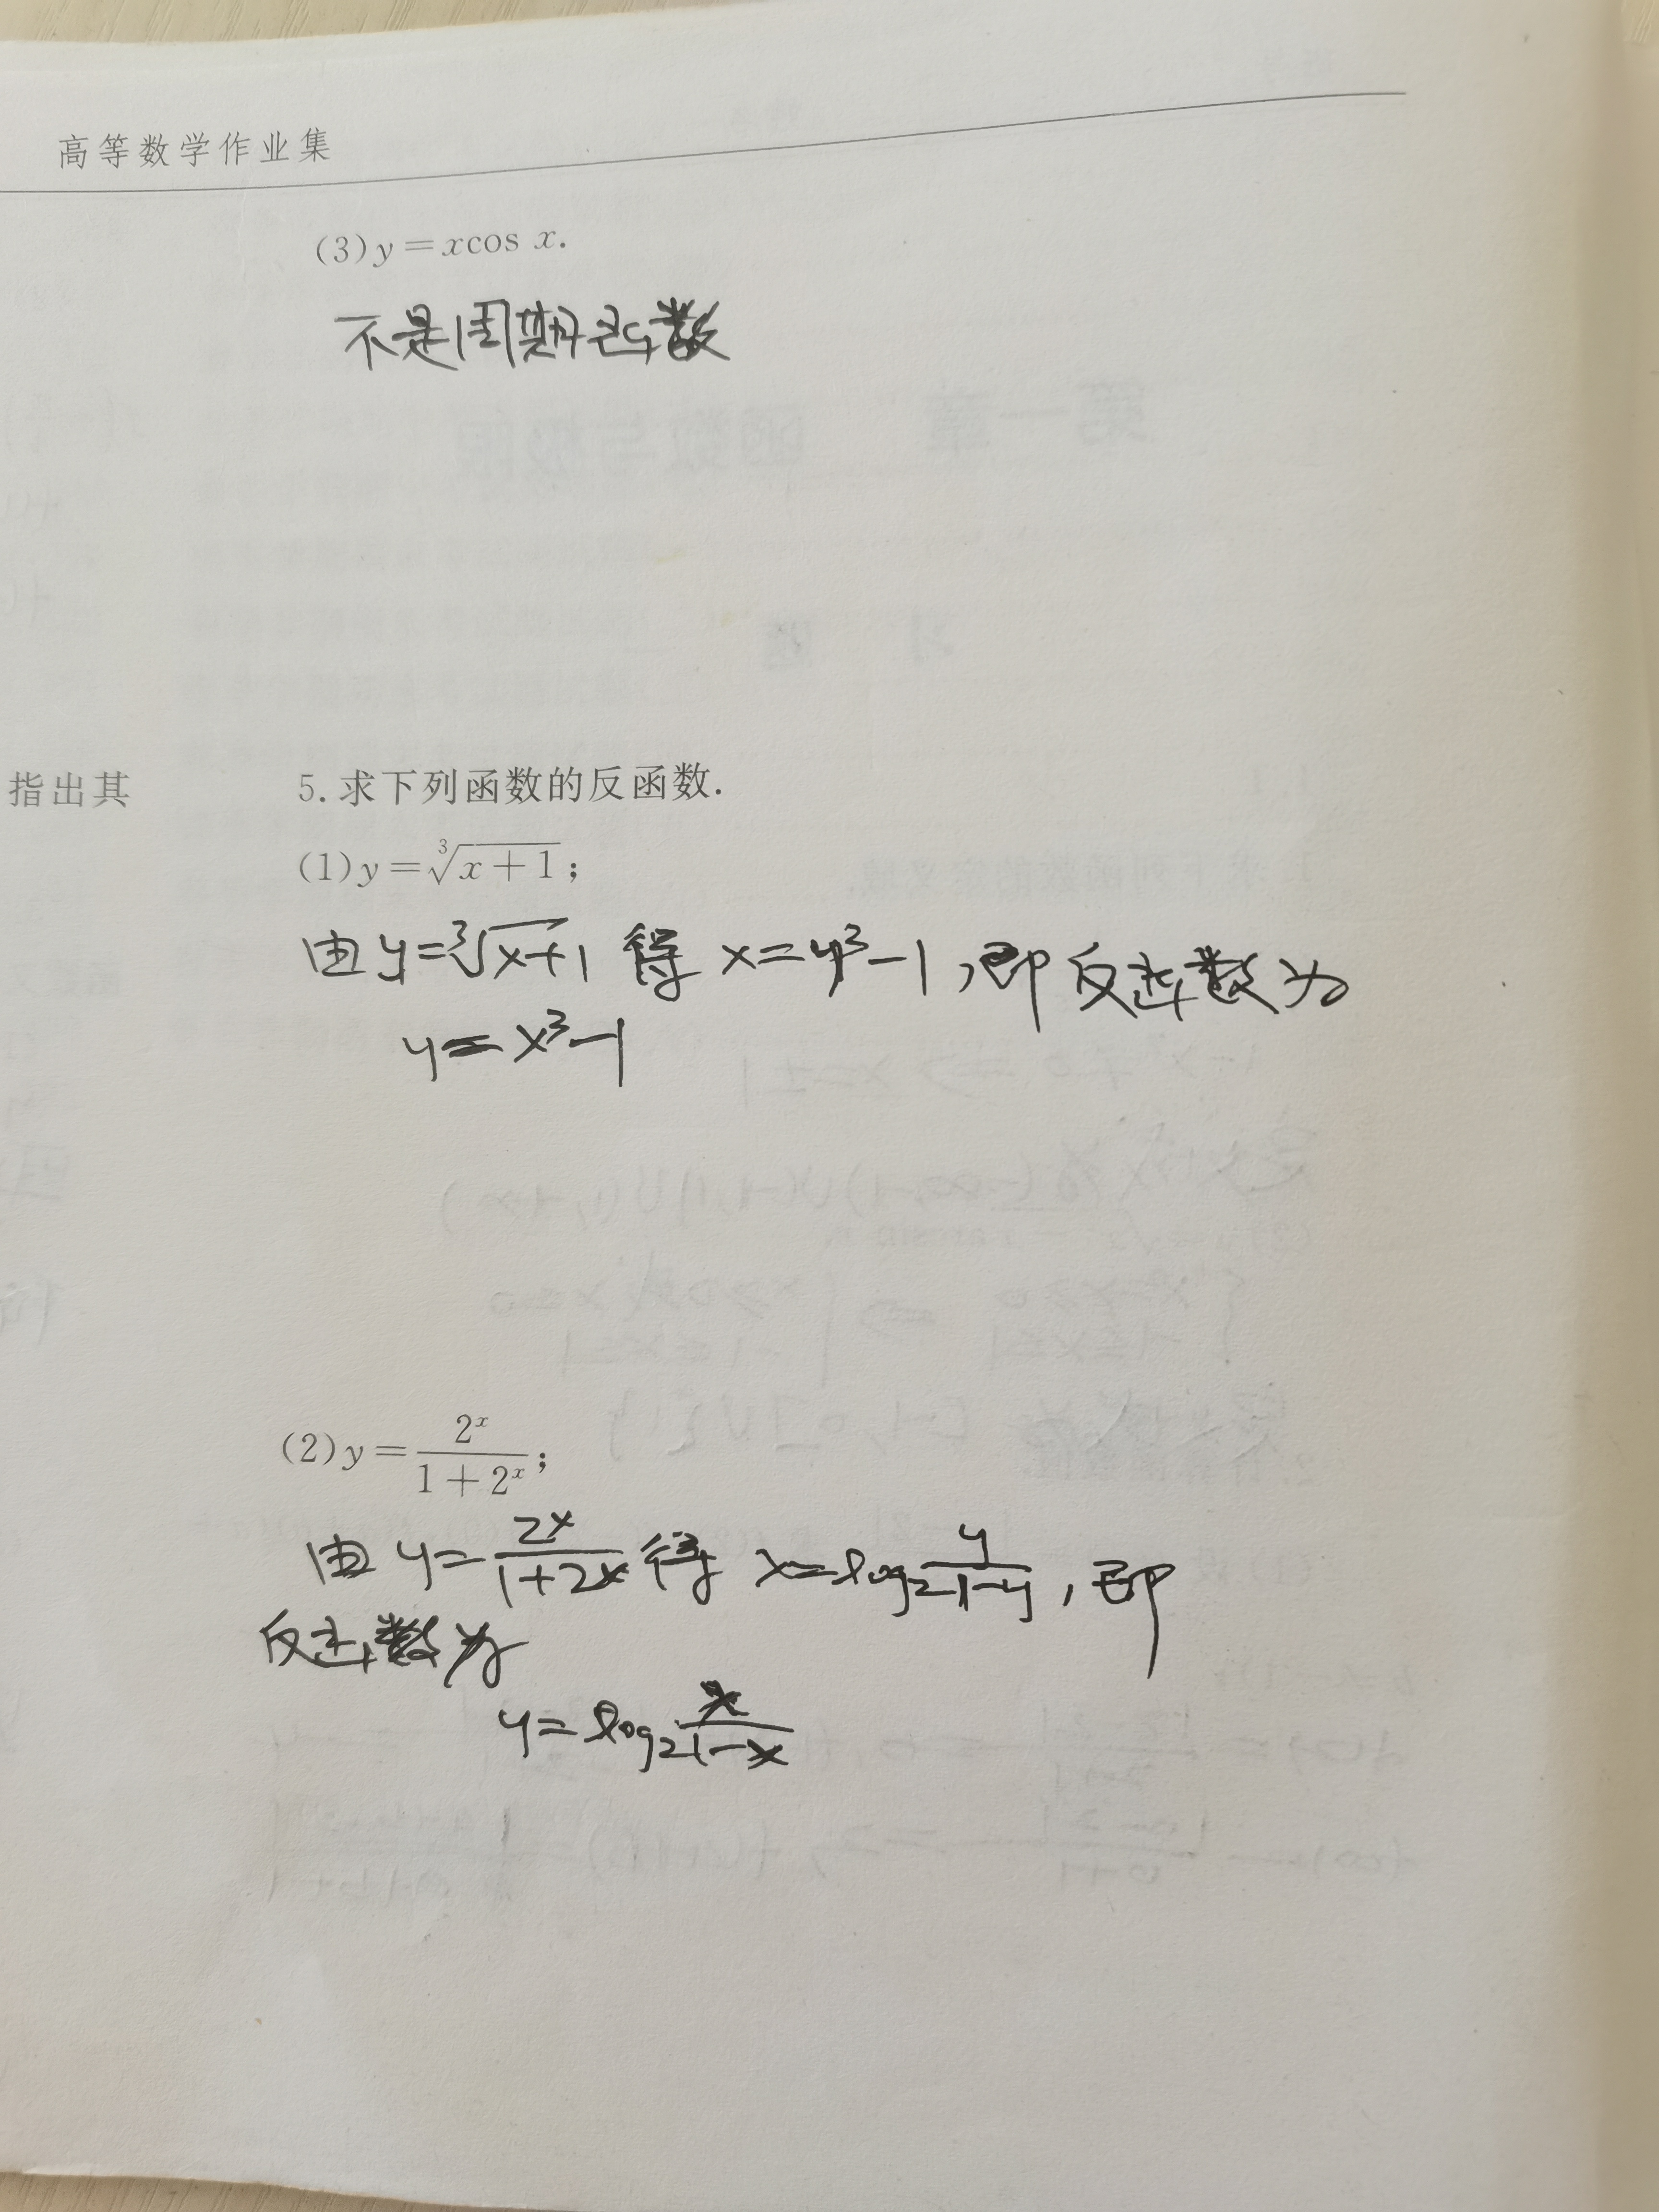 高等数学作业集
(3) y = x cos x.
不是周期函数
指出其
5. 求下列函数的反函数.
(1) y = ∛(x+1);
由 y = ∛(x+1) 得 x = y³ - 1, 即反函数为
y = x³ - 1
(2) y = 2ˣ/(1+2ˣ);
由 y = 2ˣ/(1+2ˣ) 得 x = log₂ y/(1-y), 即
反函数为
y = log₂ x/(1-x)